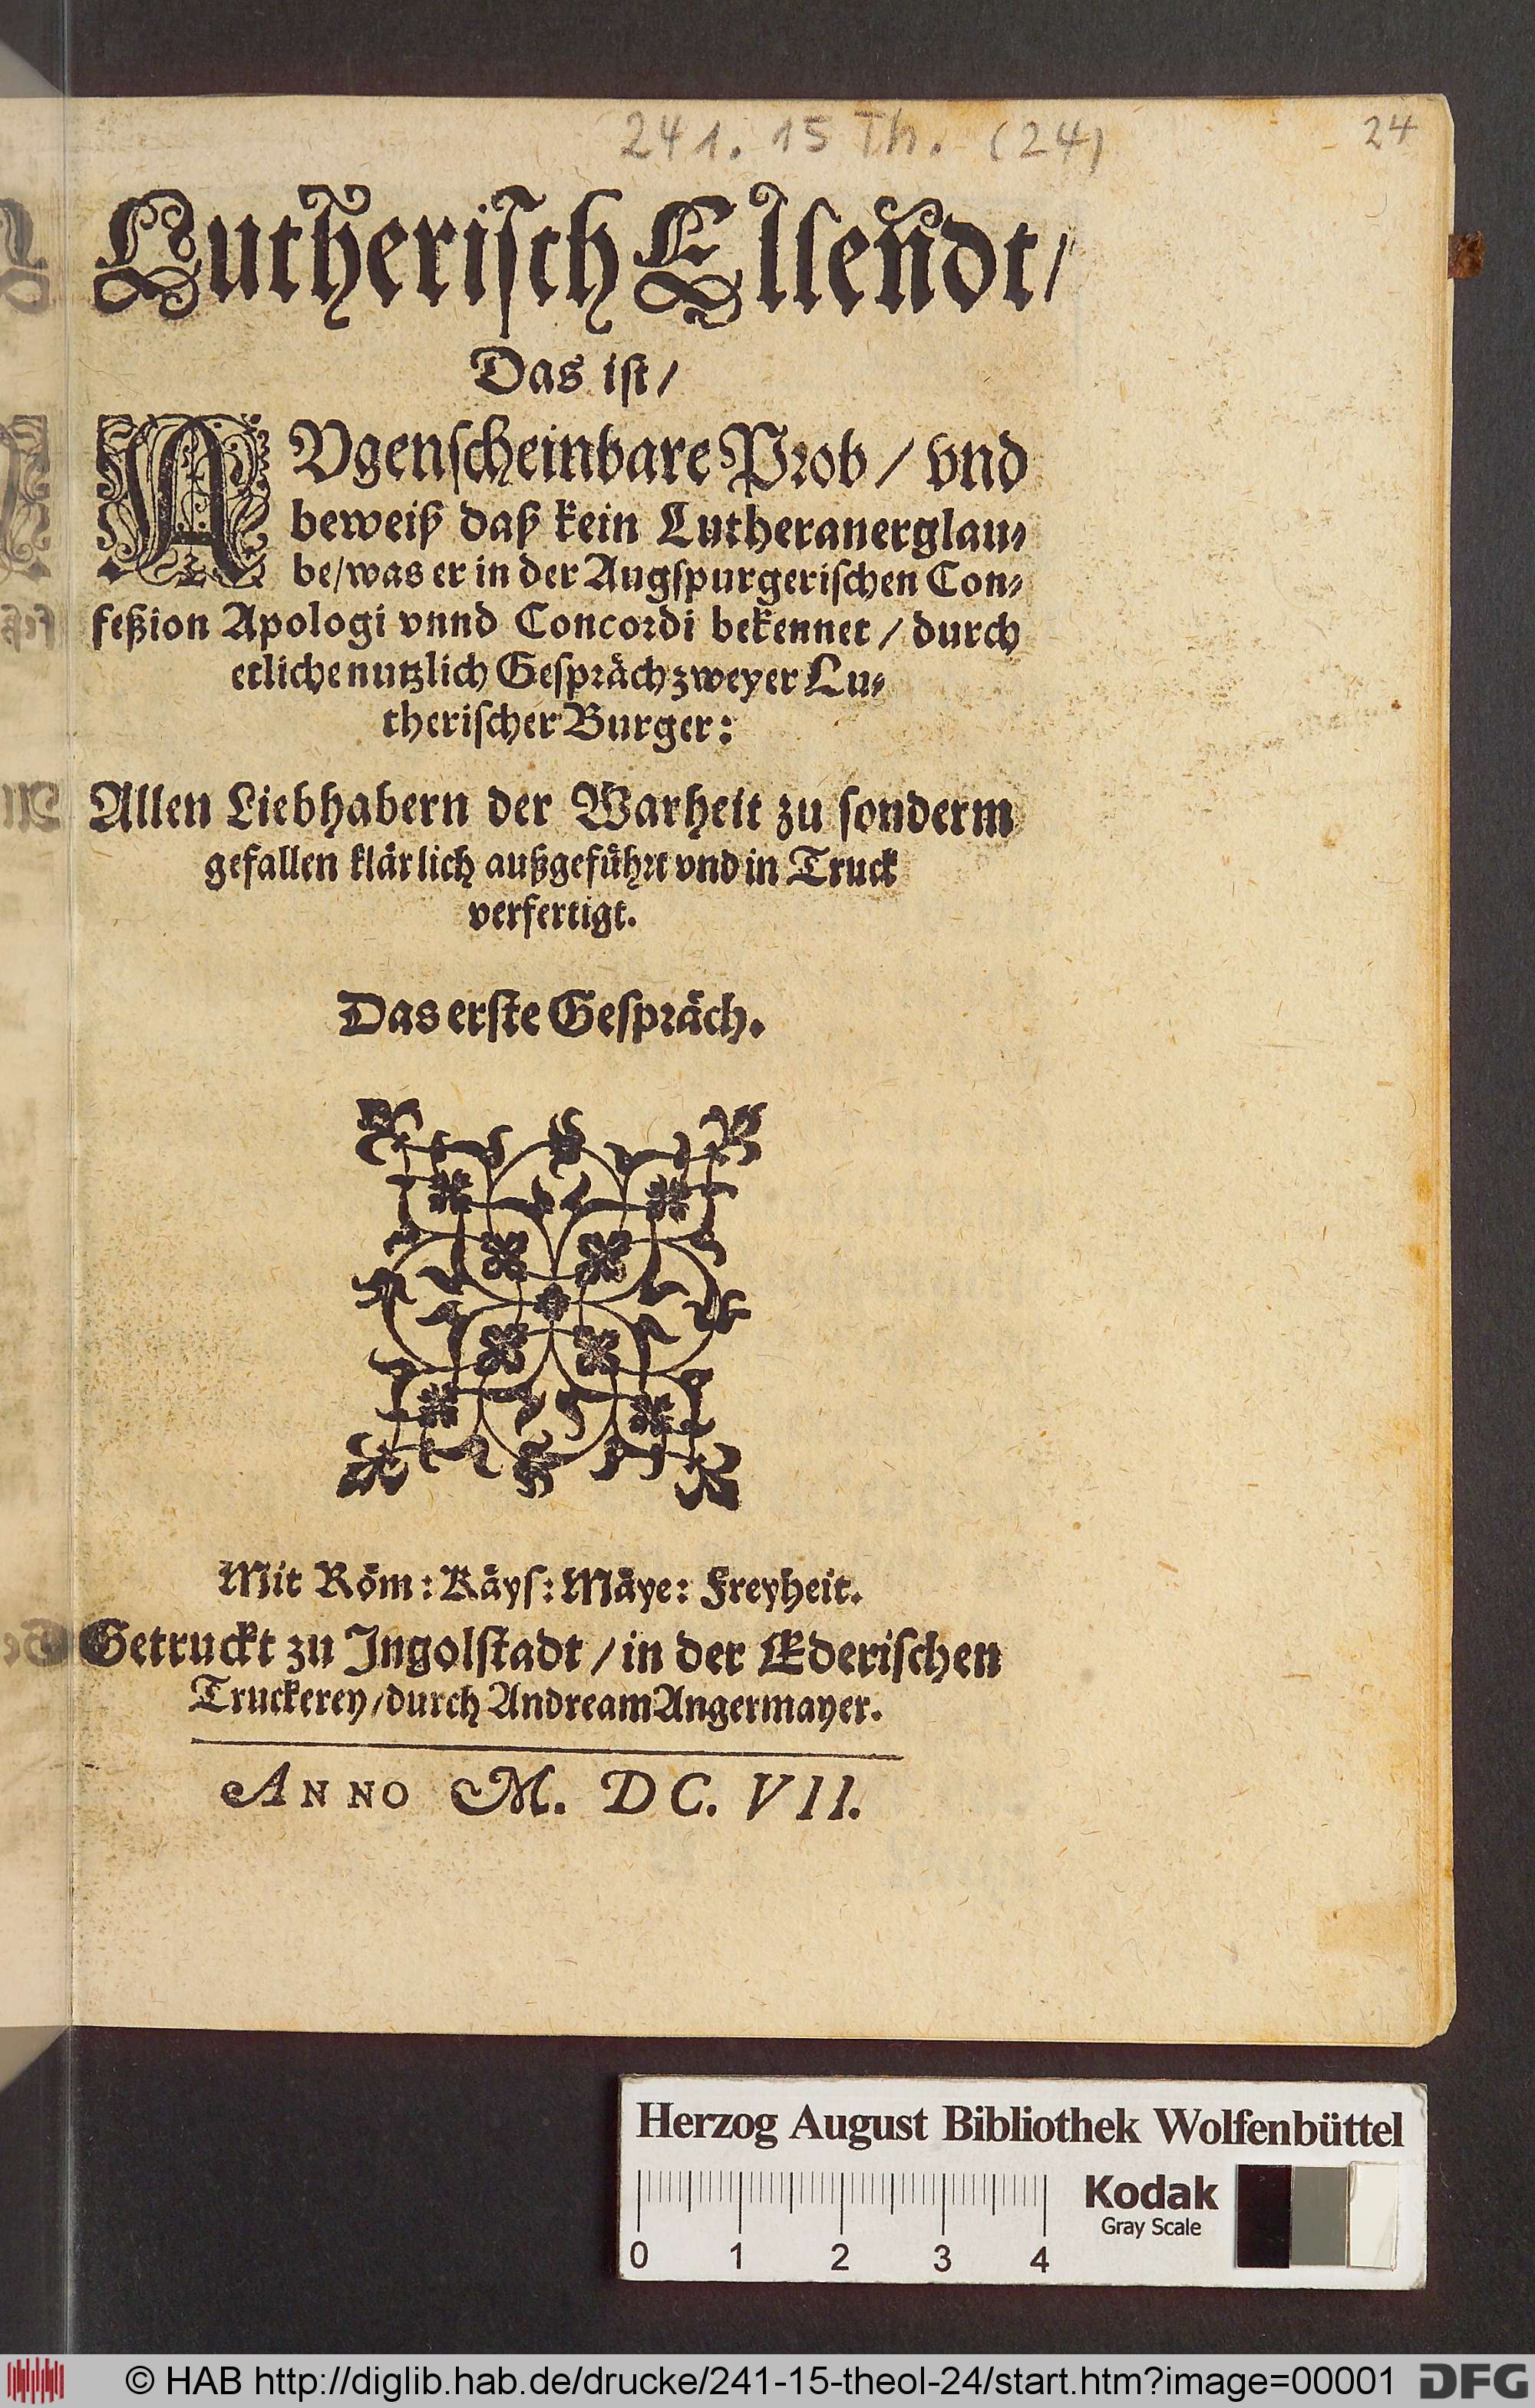 241. 15 Th. (24)
24
Lutherisch Ellendt/
Das ist/
AVgenscheinbare Prob/ vnd
beweiß daß kein Lutheraner glau⸗
be/was er in der Augspurgerischen Con⸗
feßion Apologi vnnd Concordi bekennet/ durch
etliche nutzlich Gespräch zweyer Lu⸗
therischer Burger:
Allen Liebhabern der Warheit zu sonderm
gefallen klärlich außgeführt vnd in Truck
verfertigt.
Das erste Gespräch.
Mit Röm: Käys: Mäye: Freyheit.
Getruckt zu Ingolstadt/in der Ederischen
Truckerey/durch Andream Angermayer.
ANNO M. DC. VII.
Herzog August Bibliothek Wolfenbüttel
Kodak
Gray Scale
0 1 2 3 4
© HAB http://diglib.hab.de/drucke/241-15-theol-24/start.htm?image=00001
DFG